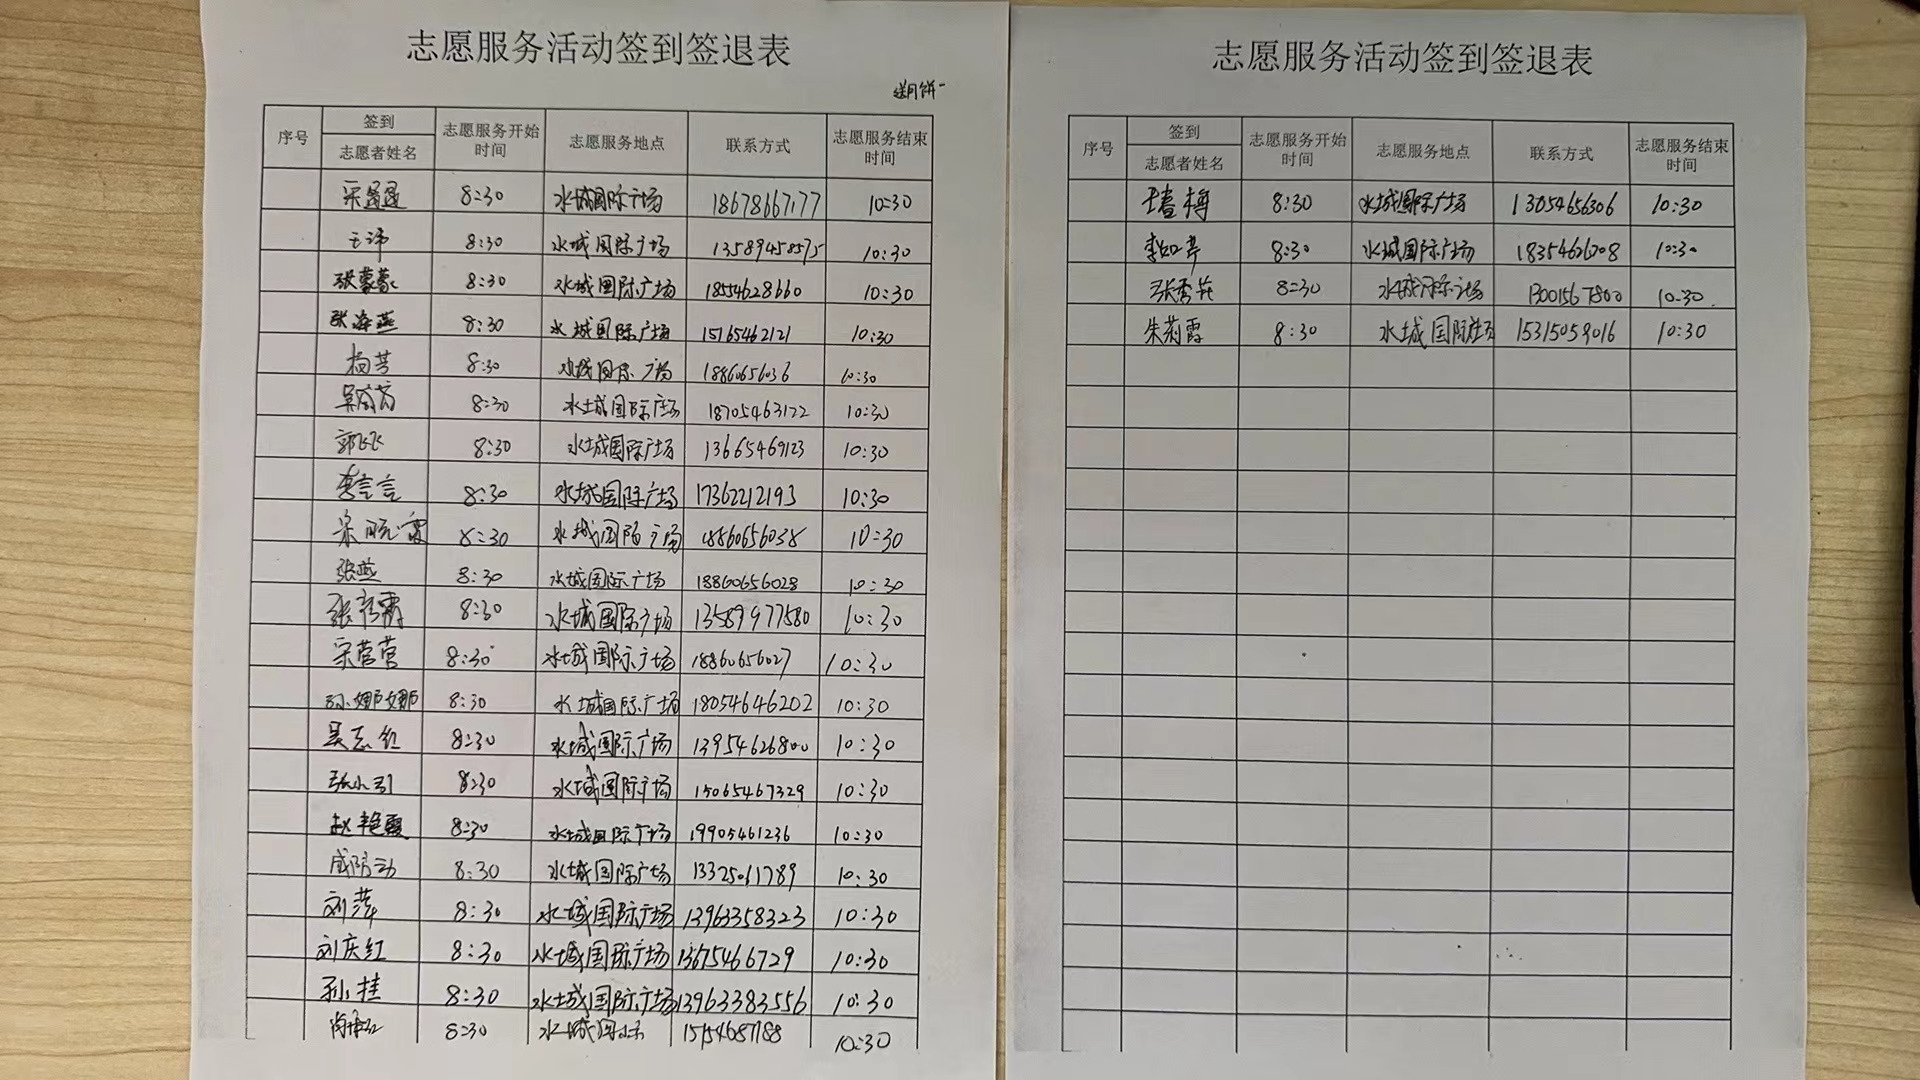 志愿服务活动签到签退表
送月饼
序号 签到 志愿服务开始时间 志愿服务地点 联系方式 志愿服务结束时间
志愿者姓名
8:30 水城国际广场 18678667177 10:30
王沛 8:30 水城国际广场 13589458575 10:30
张蒙蒙 8:30 水城国际广场 18554628660 10:30
张海燕 8:30 水城国际广场 15165462121 10:30
杨芳 8:30 水城国际广场 18860656036 10:30
8:30 水城国际广场 18705463122 10:30
郭飞飞 8:30 水城国际广场 13665469123 10:30
李言言 8:30 水城国际广场 17362212193 10:30
宋晓雷 8:30 水城国际广场 18860656038 10:30
张燕 8:30 水城国际广场 18860656028 10:30
张彦霞 8:30 水城国际广场 13589977580 10:30
宋营营 8:30 水城国际广场 18860656027 10:30
孙娜娜 8:30 水城国际广场 18054646202 10:30
吴志红 8:30 水城国际广场 13954626800 10:30
张小引 8:30 水城国际广场 15065467329 10:30
赵艳霞 8:30 水城国际广场 19905461236 10:30
8:30 水城国际广场 13325061789 10:30
刘萍 8:30 水城国际广场 13963358323 10:30
刘庆红 8:30 水城国际广场 13675466729 10:30
孙桂 8:30 水城国际广场 13963383556 10:30
8:30 水城国际 15154687188 10:30
志愿服务活动签到签退表
序号 签到 志愿服务开始时间 志愿服务地点 联系方式 志愿服务结束时间
志愿者姓名
王春梅 8:30 水城国际广场 13054656306 10:30
李如芹 8:30 水城国际广场 18354626208 10:30
张秀花 8:30 水城国际广场 13001567800 10:30
朱莉霞 8:30 水城国际广场 15315059016 10:30